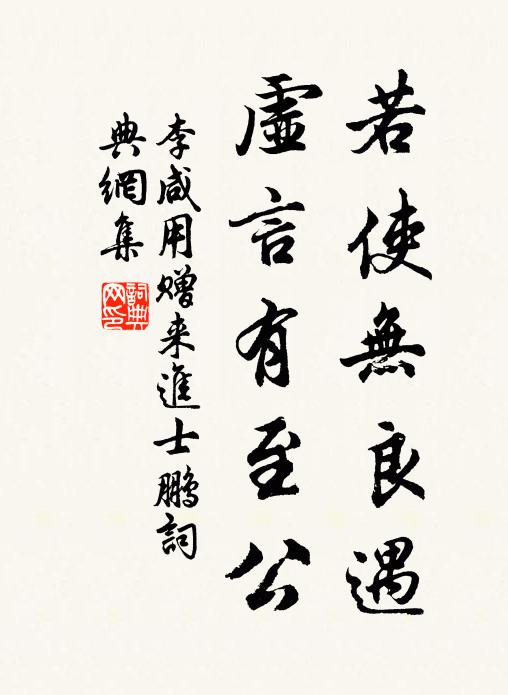 若使無良遇
虛言有至公
李咸用赠来進士鵬詞
典網集
詞典網印